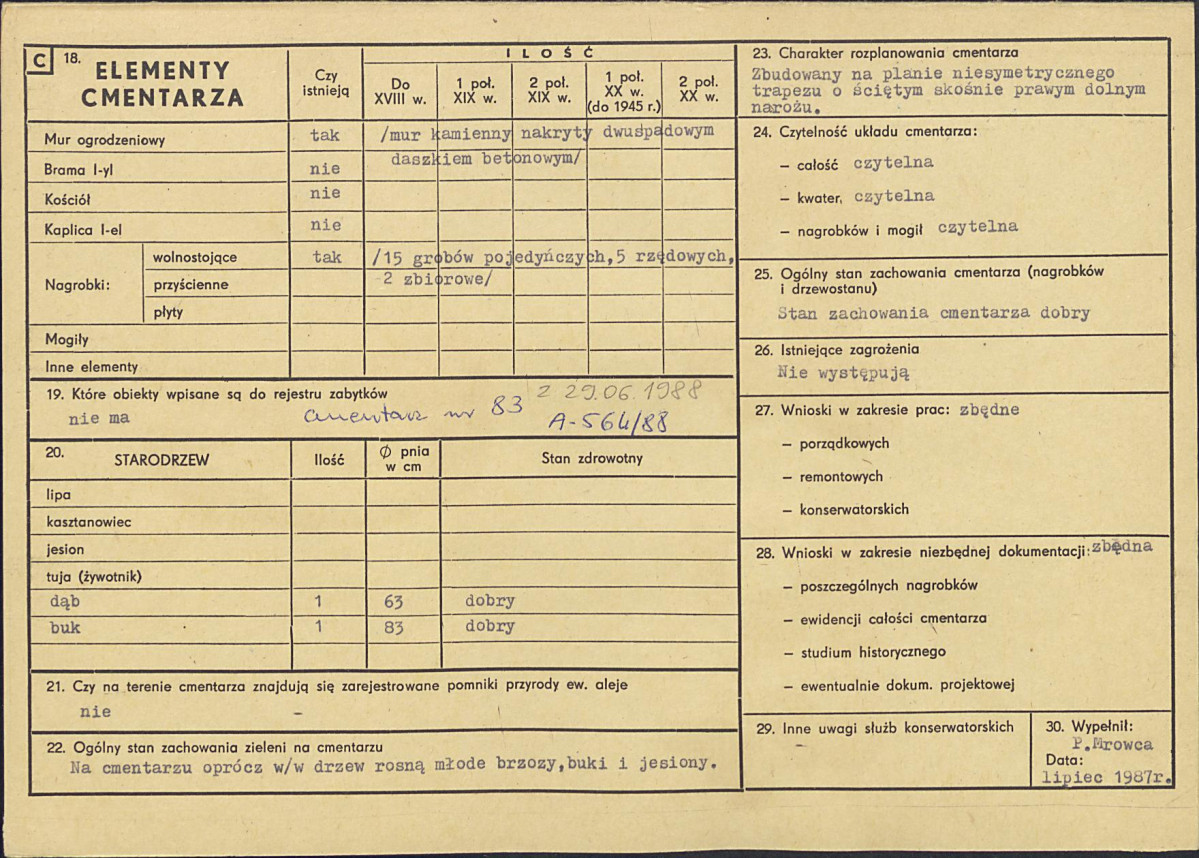 C 18. ELEMENTY CMENTARZA
Czy istnieją
ILOŚĆ
Do XVIII w.
1 poł. XIX w.
2 poł. XIX w.
1 poł. XX w. (do 1945 r.)
2 poł. XX w.
Mur ogrodzeniowy tak /mur kamienny nakryty dwuspadowym
Brama I-yl nie daszkiem betonowym/
Kościół nie
Kaplica I-el nie
Nagrobki:
wolnostojące tak /15 grobów pojedyńczych,5 rzędowych,
przyścienne 2 zbiorowe/
płyty
Mogiły
Inne elementy
19. Które obiekty wpisane są do rejestru zabytków
nie ma cmentarz nr 83 z 29.06.1988
A-564/88
20. STARODRZEW Ilość Ø pnia w cm Stan zdrowotny
lipa
kasztanowiec
jesion
tuja (żywotnik)
dąb 1 63 dobry
buk 1 83 dobry
21. Czy na terenie cmentarza znajdują się zarejestrowane pomniki przyrody ew. aleje
nie –
22. Ogólny stan zachowania zieleni na cmentarzu
Na cmentarzu oprócz w/w drzew rosną młode brzozy,buki i jesiony.
23. Charakter rozplanowania cmentarza
Zbudowany na planie niesymetrycznego
trapezu o ściętym skośnie prawym dolnym
narożu.
24. Czytelność układu cmentarza:
– całość czytelna
– kwater, czytelna
– nagrobków i mogił czytelna
25. Ogólny stan zachowania cmentarza (nagrobków
i drzewostanu)
Stan zachowania cmentarza dobry
26. Istniejące zagrożenia
Nie występują
27. Wnioski w zakresie prac: zbędne
– porządkowych
– remontowych
– konserwatorskich
28. Wnioski w zakresie niezbędnej dokumentacji: zbędna
– poszczególnych nagrobków
– ewidencji całości cmentarza
– studium historycznego
– ewentualnie dokum. projektowej
29. Inne uwagi służb konserwatorskich
–
30. Wypełnił:
P.Mrowca
Data:
lipiec 1987r.